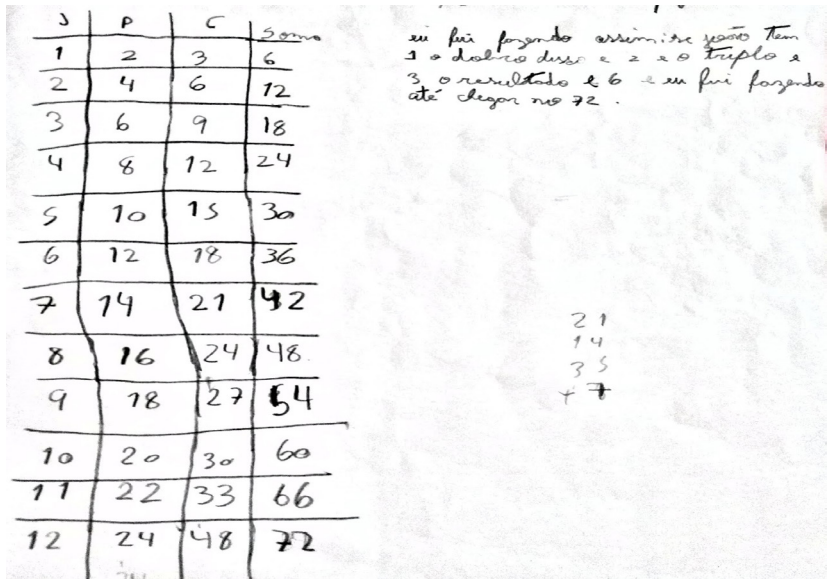 J P C Soma
1 2 3 6
2 4 6 12
3 6 9 18
4 8 12 24
5 10 15 30
6 12 18 36
7 14 21 42
8 16 24 48
9 18 27 54
10 20 30 60
11 22 33 66
12 24 48 72
eu fui fazendo assim: se joão tem
1 o dobro disso e 2 e o triplo e
3 o resultado é 6 e eu fui fazendo
até chegar no 72.
21
14
35
+ 7